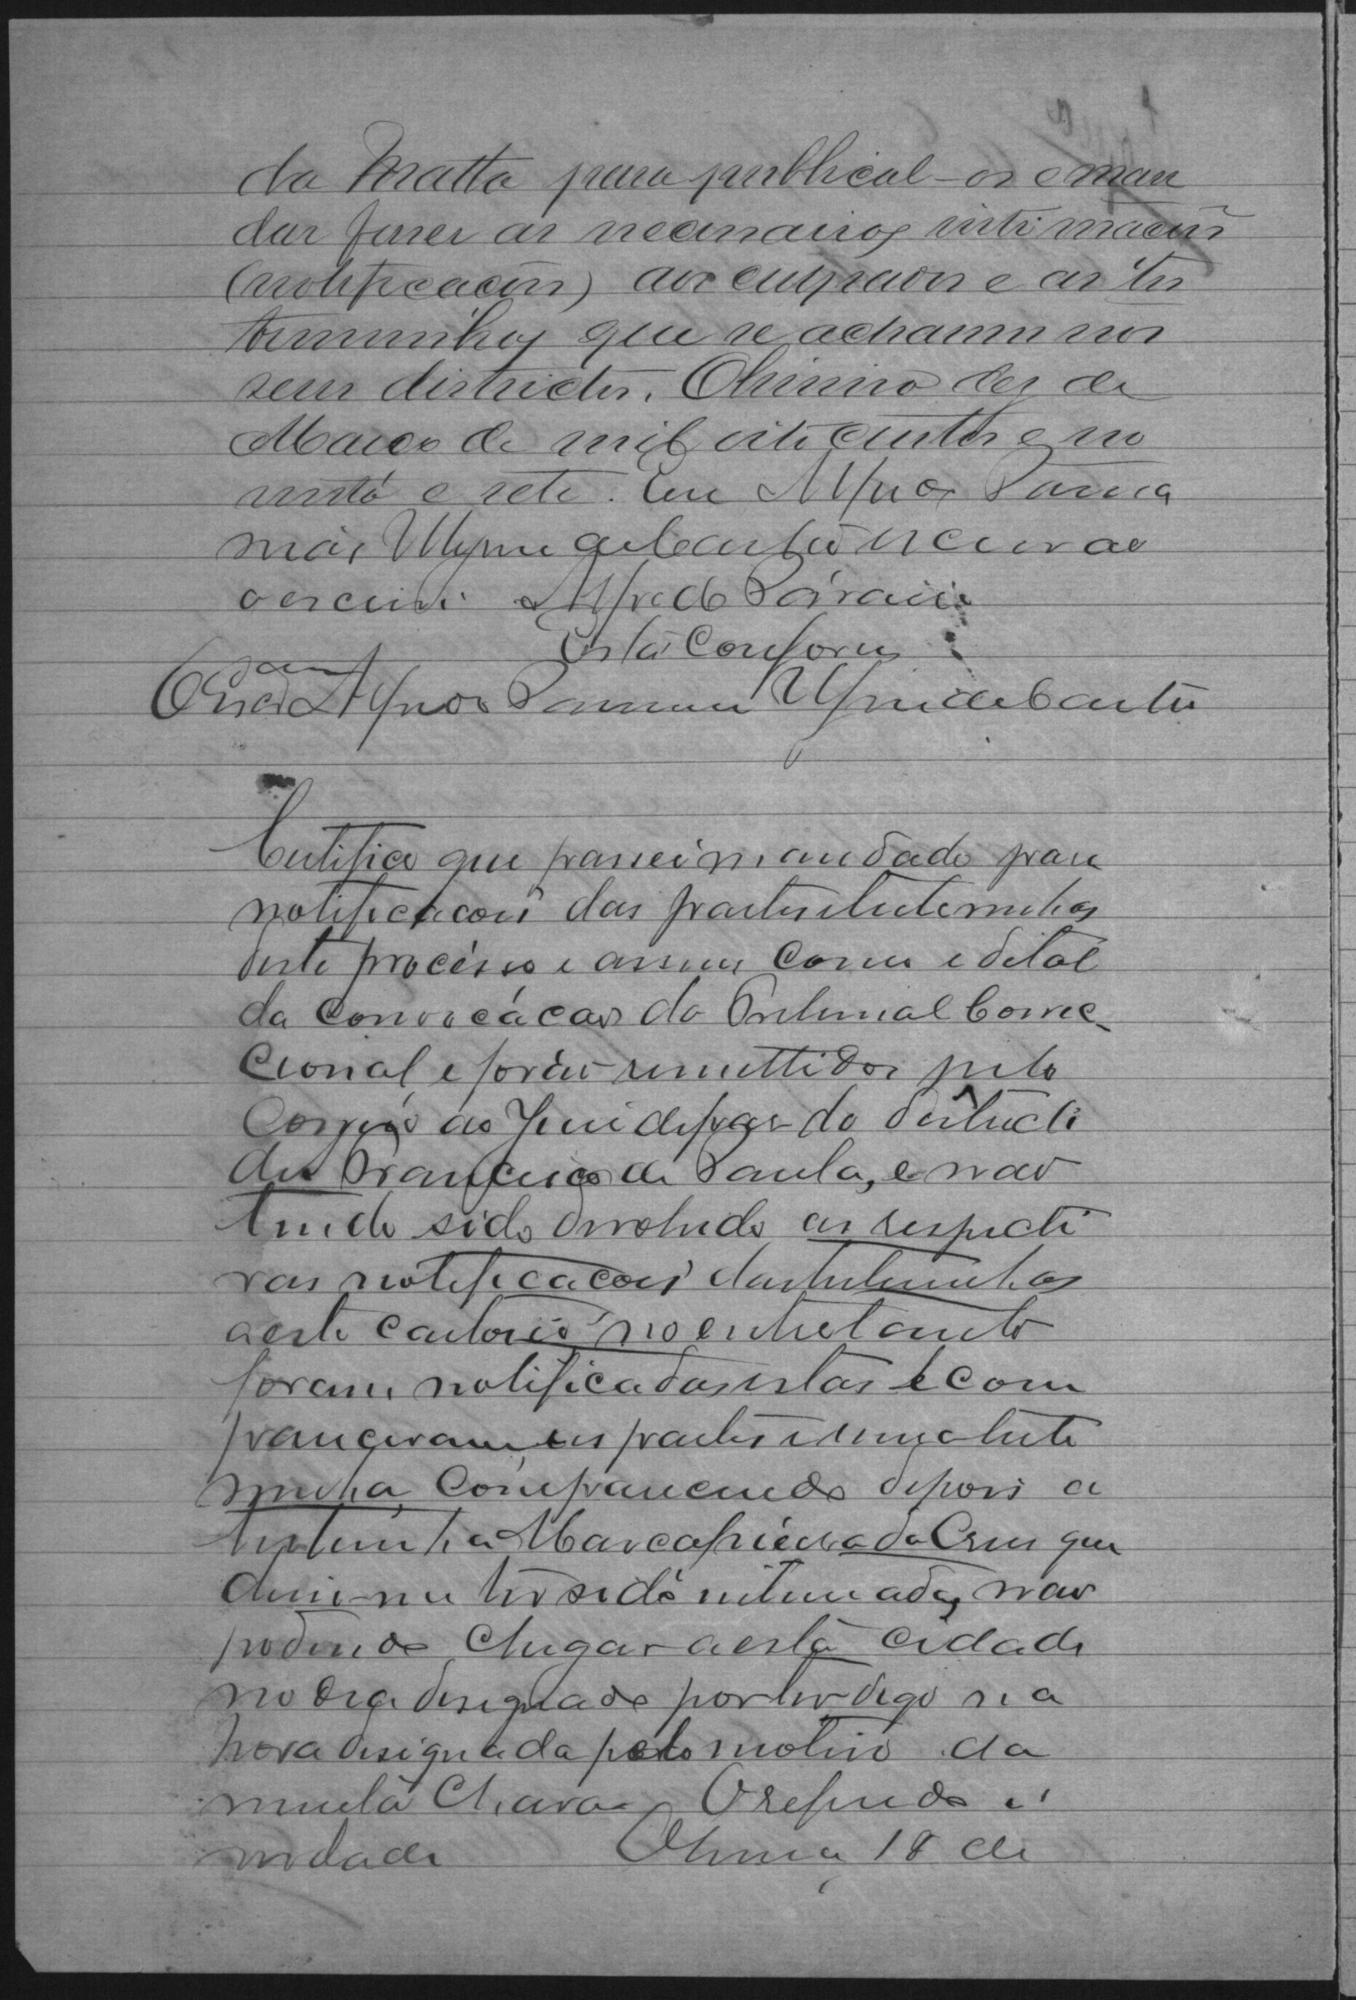 da Matta para publical-os e man
dar faser as necessarias intimacões
(notificacões) aos culpados e as tes
temunhas que se acharem nos
seus districtos. Olimira des de
Março de mil oito centos e no
venta e sete. Eu Alfredo
mão escrivão
o escrevi. Alfredo
Está Conforme
O Escrivão
Certifico que passei mandado para
notificacoes das partes e testemunhas
deste processo e assim como edital
da convocácao do Tribunal Correc-
cional e forão remettidos pelo
Correio ao Juiz de pas do districto
de S Francisco de Paula, e nao
tendo sido devolvido as respecti
vas notificacoes das testemunhas
a este cartorio no entretanto
foram notificadas estas e com
pareceram as partes e uma teste
munha, comparecendo depois a
testemunha Marcolina da Crus que
disse-me ter sido intimada, nao
podendo chegar a esta cidade
no dia designado por ter digo na
hora designada pelo motivo da
muita Chuva O referido é
verdade 18 de